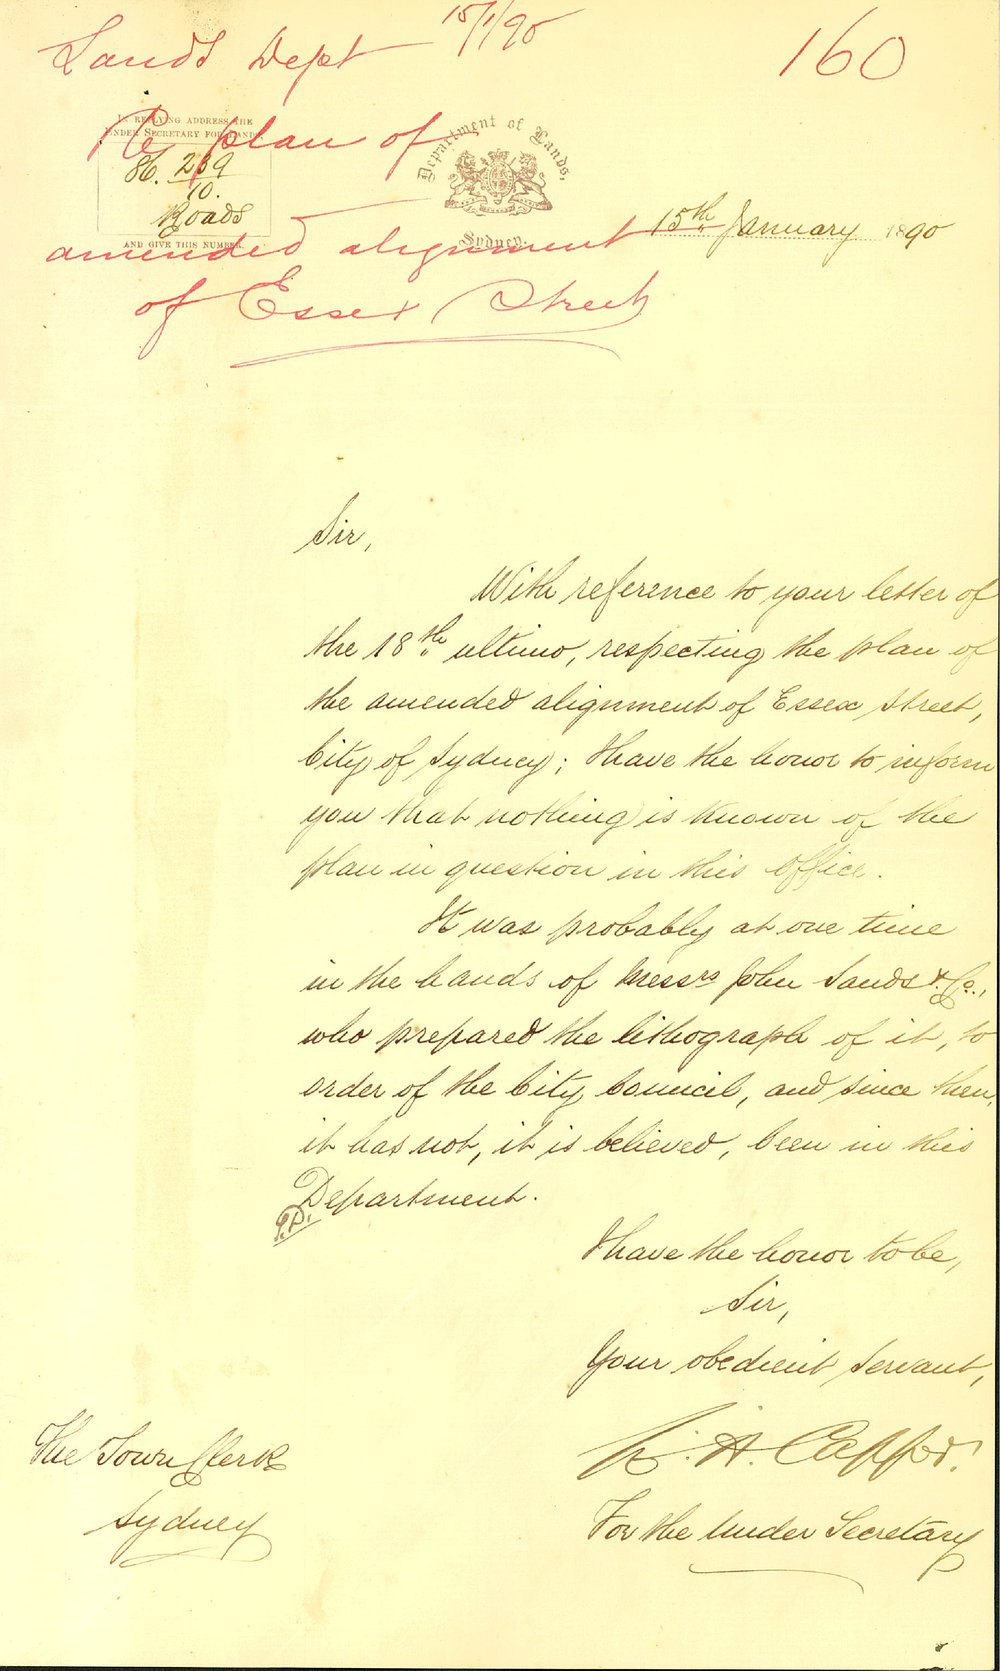 15/1/90
Lands Dept
160
Re plan of
amended alignment
of Essex Street
IN REPLYING ADDRESS THE
UNDER SECRETARY FOR LANDS
86. 239
10.
Roads
AND GIVE THIS NUMBER.
Department of Lands,
Sydney.
15th January 1890
Sir,
With reference to your letter of
the 18th ultimo, respecting the plan of
the amended alignment of Essex Street,
City of Sydney; I have the honor to inform
you that nothing is known of the
plan in question in this office.
It was probably at one time
in the hands of Messrs John Sands & Co.,
who prepared the lithograph of it, to
order of the City Council, and since then,
it has not, it is believed, been in this
Department.
I have the honor to be,
Sir,
Your obedient Servant,
For the Under Secretary
The Town Clerk
Sydney